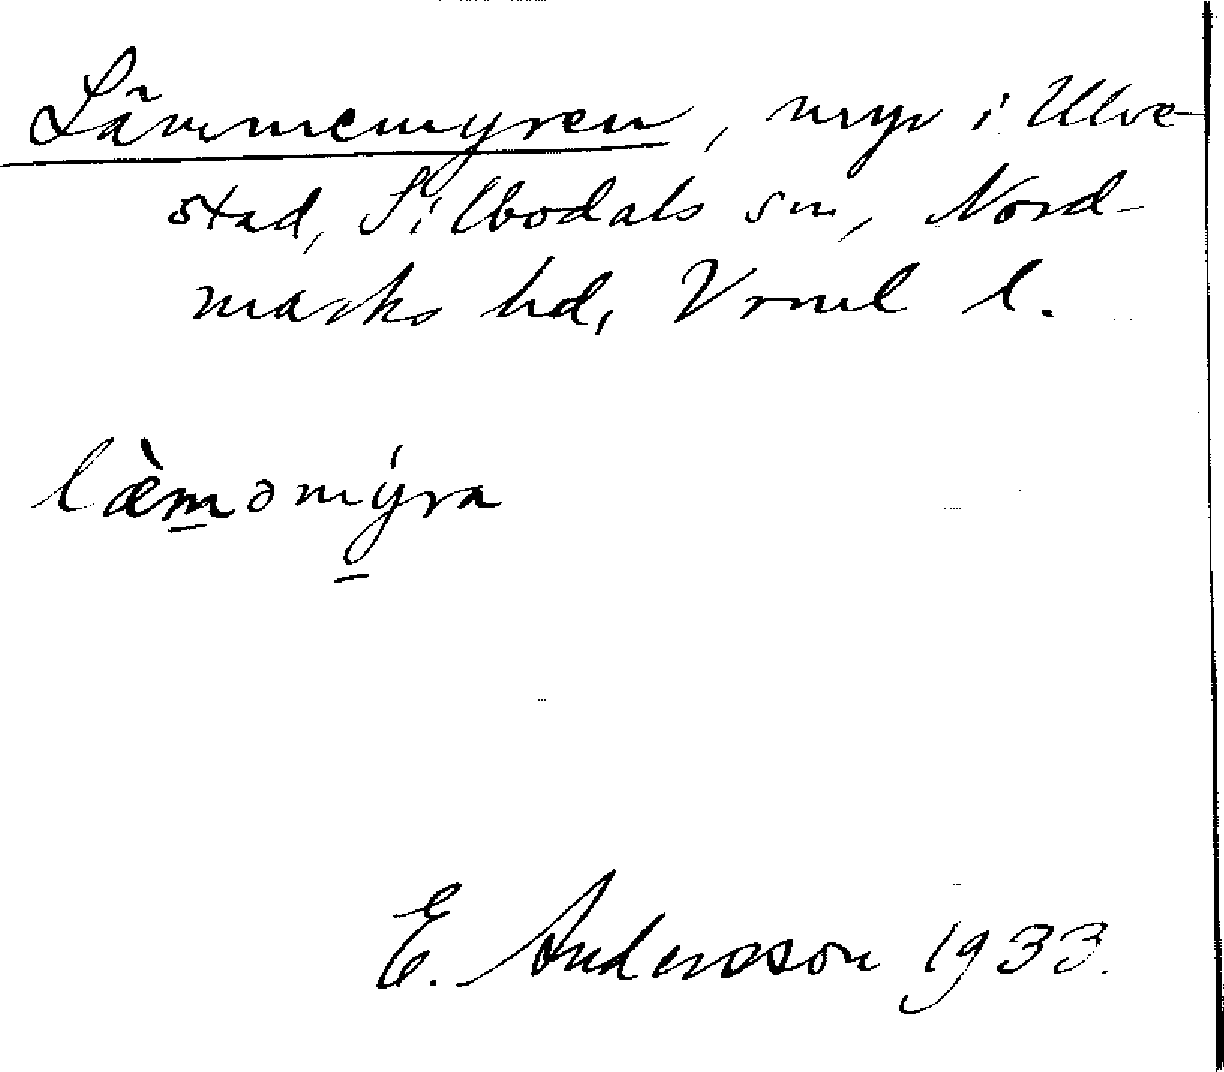 Lämmemyren, myr i Ulve-
stad, Silbodals sn, Nord-
marks hd, Vrml l.
læ̀məmýra
E. Andersson 1933.